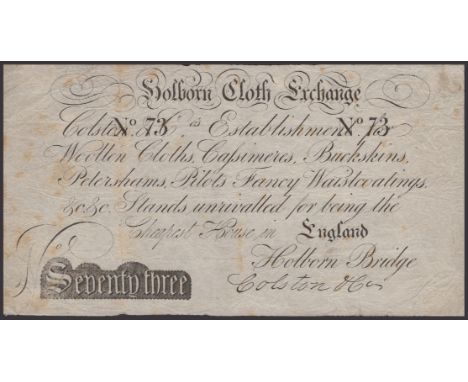 Holborn Cloth Exchange
Colston & Co's Establishment for
No 73 No 73
Woollen Cloths, Caſsimeres, Buckskins,
Petershams, Pilots Fancy Waistcoatings,
&c &c. Stands unrivalled for being the
Cheapest House, in England
No 73 Holborn Bridge
Seventy three
Colston & Co